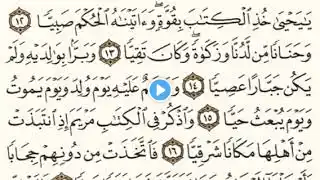 يَٰيَحۡيَىٰ خُذِ ٱلۡكِتَٰبَ بِقُوَّةٖۖ وَءَاتَيۡنَٰهُ ٱلۡحُكۡمَ صَبِيّٗا ١٢
وَحَنَانٗا مِّن لَّدُنَّا وَزَكَوٰةٗۖ وَكَانَ تَقِيّٗا ١٣ وَبَرَّۢا بِوَٰلِدَيۡهِ وَلَمۡ
يَكُن جَبَّارًا عَصِيّٗا ١٤ عَلَيۡهِ يَوۡمَ وُلِدَ وَيَوۡمَ يَمُوتُ
وَيَوۡمَ يُبۡعَثُ حَيّٗا ١٥ وَٱذۡكُرۡ فِي ٱلۡكِتَٰبِ مَرۡيَمَ إِذِ ٱنتَبَذَتۡ
مِنۡ أَهۡلِهَا مَكَانٗا شَرۡقِيّٗا ١٦ فَٱتَّخَذَتۡ مِن دُونِهِمۡ حِجَابٗا